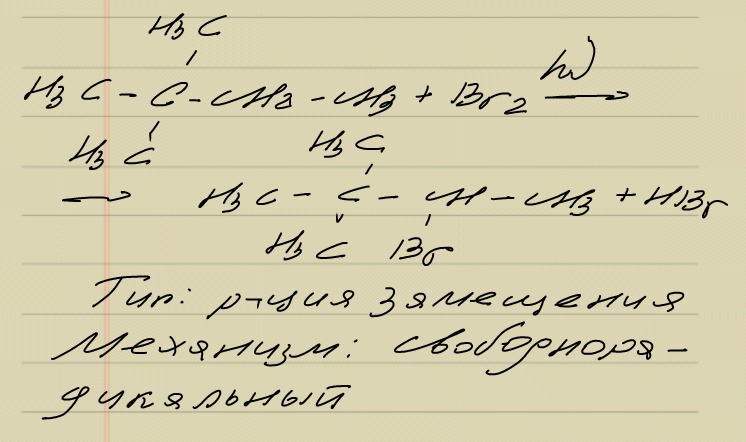 H3C
H3C - C - CH2 - CH3 + Br2 hν →
H3C
H3C
→ H3C - C - CH - CH3 + HBr
H3C Br
Тип: р-ция замещения
Механизм: свободнора-
дикальный